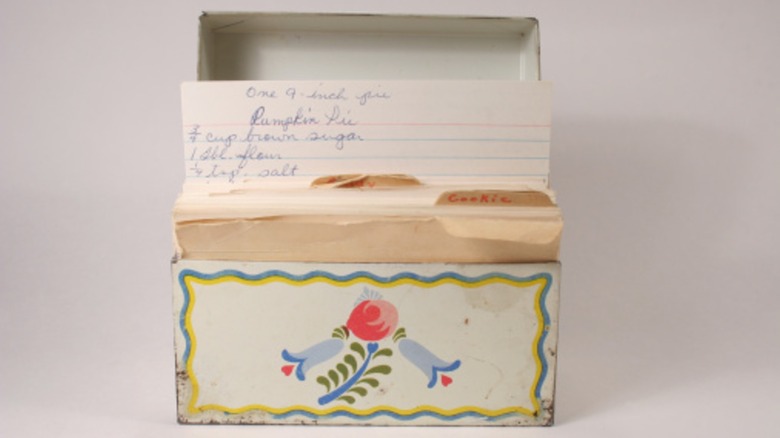 One 9-inch pie
Pumpkin Pie
3/4 cup brown sugar
1 tbl. flour
1/4 tsp. salt
Cookie